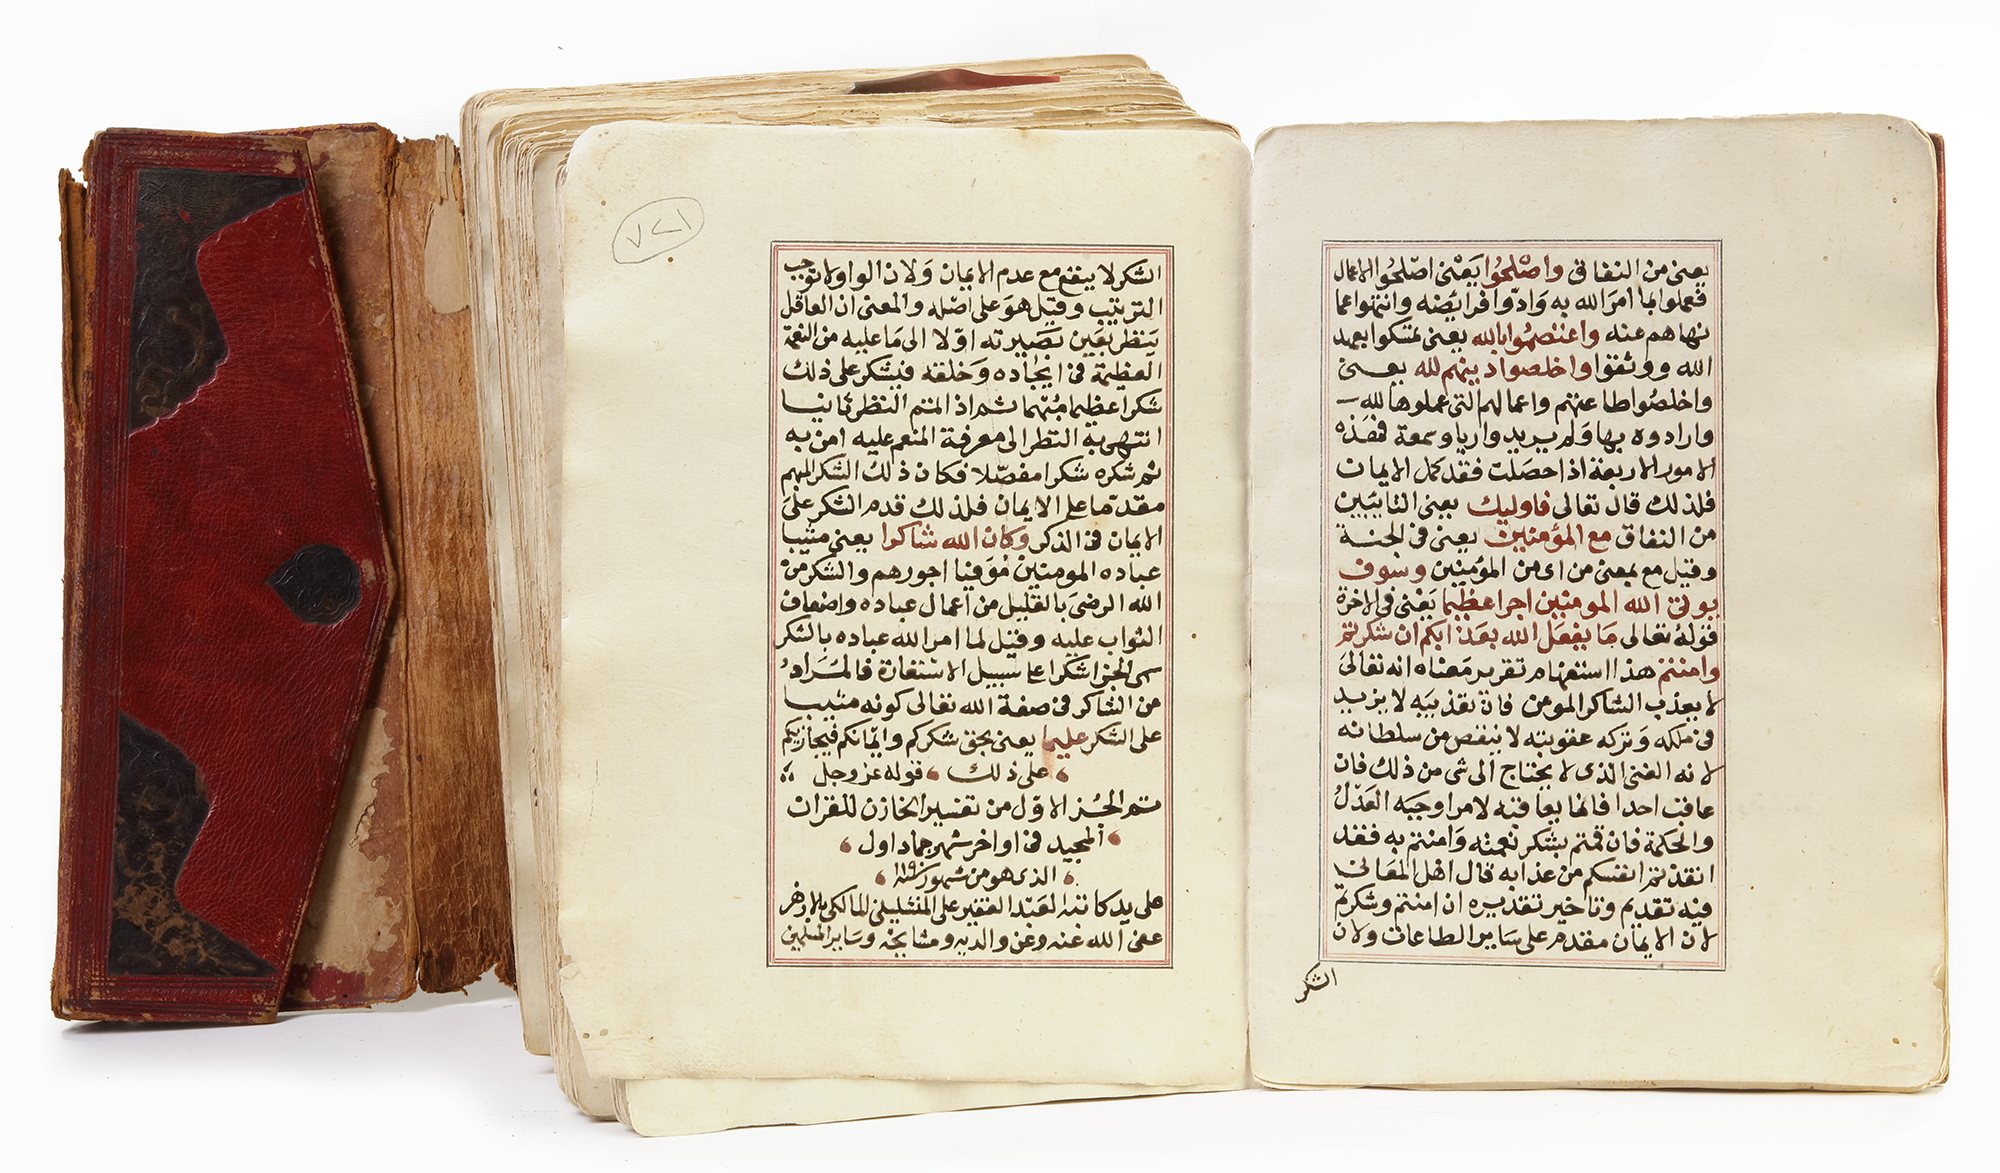 يعنى من النفاق واصْلحُوا يَعْنى اصْلحُوا الاعمال
فعملوا بما امرَ الله به وَادّوا فرايضه وانتهوا عما
نهاهم عنه واعتصمُوا بالله يعنى تمسكوا بعهد
الله ووثقوا واخلصوا دينهم لله يعنى
واخلصُوا طاعتهم واعمالهم التى عملوها لله
وارادوه بها وَلم يريدوا رياء وسمعة فهَذه
الامور الاربعة اذا حصَلت فقد كمل الايمان
فلذلك قال تعالى فاوليك يعنى التايبَين
من النفاق مع المؤمنين يعنى فى الجنة
وقيل مع بمعنى من اى من المؤمنين وسوف
يوتى الله المومنين اجرا عظيما يَعْنى فى الاخرة
قوله تعالى مَا يفعَل الله بعَذابكم ان شكرتم
وامنتم هذا استفهام تقرير مَعناه انه تعَالى
لا يعذب الشاكر المومن فان تعَذيبَه لا يزيد
فى ملكه وَتركه عقوبته لا ينقص من سلطانه
لانه الغنى الذى لا يحتاج الى شى من ذلك فان
عاقب احدا فانما يعَاقبه لامر اوجبَه العَدْلُ
والحكمة فان قمتم بشكر نعمته وَامنتم به فقد
انقذتم انفسكم من عذابه قال اهْل المعَانى
فيه تقديم وَتاخير تقديره ان امنتم وشكرتم
لان الايمان مقدم على سَاير الطاعات ولان
الشكر
٧٢١
الشكر لا ينفع مع عدم الايمان وَلان الواو لا توجب
الترتيب وقيل هوَ على اصْله والمعنى ان العاقل
ينظر بعَين بَصيرته اوّلا الى مَا عليه من النعمة
العَظيمة فى ايجاده وَخلقه فيشكر على ذلك
شكرا عظيما مُبْهما ثم اذا اتمم النظر ثانيا
انتهى به النظر الى معرفة المنعم عليه امن به
ثم شكره شكرا مفصّلا فكان ذلك الشكر المبهم
مقدمّا على الايمان فلذلك قدم الشكر على
الايمان فى الذكر وكان الله شاكرا يعنى مثيب
عباده المومنين مُوَفيا اجورهم والشكر من
الله الرضىَ بالقليل من اعمال عباده واضعَاف
الثواب عليه وقيل لما امر الله عباده بالشكر
سمى الجزا شكرا على سبيل الاستعَارة فالمُرَادُ
من الشاكر فى صفة الله تعالى كونه مثيبا
على الشكر عليما يعنى بحق شكركم وايمانكم فيجازيكم
على ذلك قوله عز وجل
تم الجُز الاوّل من تفسير الخازن للقران
المجيد فى اواخر شهر جماد اول
الذى هو من شهور ١١٩٠
على يد كاتبه العَبْد الفقير على المنشليلى المالكى بالازهر
عفى الله عَنه وعن والديه ومشايخه وسَاير المسلمين